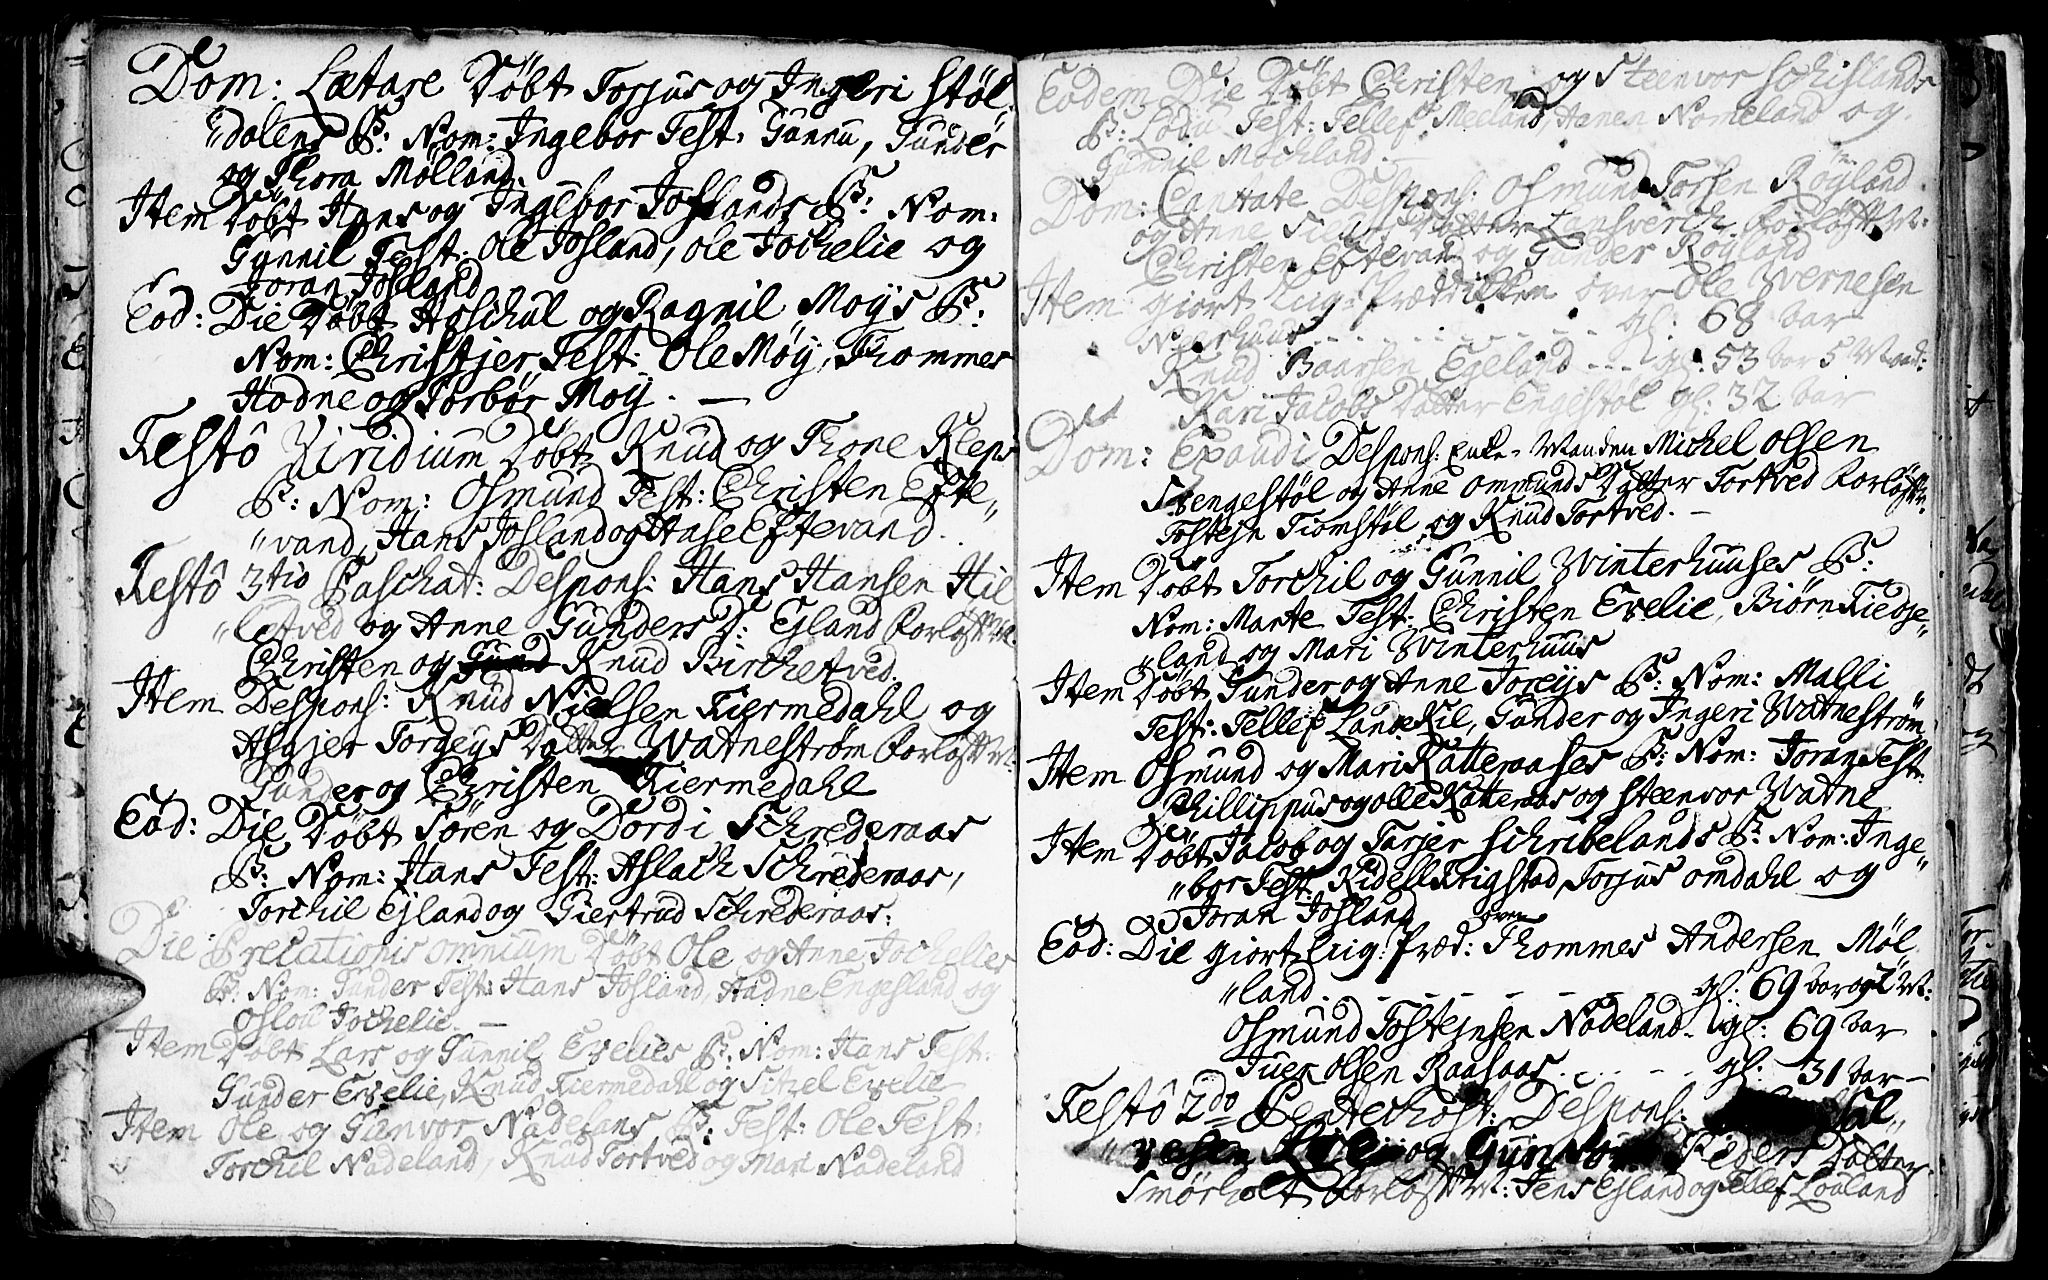 Dom: Lætare Døbt Torjus og Ingeri Støl„
„dalens B: Nom: Ingebor Test: Gunnu, Gunder
og Thora Mølland.
Item Døbt Hans og Ingebor Joslands B: Nom:
Gunnil Test: Ole Josland, Ole Jochelie og
Joran Josland
Eod: Die Døbt Aschul og Ragnil Moÿs B:
Nom: Christjer Test: Ole Møÿ, Thommes
Hodne og Torbør Moÿ. —
Festô Viridium Døbt Knud og Thone Kleps
B: Nom: Osmund Test: Christen Efte„
„vand, Hans Josland og Aase Eftevand.
Festô 3tio Paschat: Despons: Hans Hansen Hil
„letved og Anne Gunders D: Egland Forløft M:
Christen og Knud Birchetved.
Item Despons: Knud Nielsen Fiermedahl og
Asgjer Torgeÿs Datter Watnestrøm Forløft M:
Gunder og Christen Fiermedahl
Eod: Die Døbt Søren og Dordi Schrederaas
B: Nom: Hans Test: Aslach Schrederaas,
Torchil Egland og Giertrud Schrederaas:
Die Precationis omnium Døbt Ole og Anne Jochelies
B: Nom: Gunder Test: Hans Josland, Aadne Engesland og
Oslou Jochelie. —
Item Døbt Lars og Gunnil Evelies B: Nom: Hans Test:
Gunder Evelie, Knud Fiermedahl og Sitzel Evelie
Item Ole og Gunvor Nadelans B: Test: Ole Test:
Torchil Nadeland, Knud Tortved og Mari Nadeland
Eodem Die Døbt Christen og Steenvor Schislands
B: Lodu Test: Tellef Meeland, Hanen Nomeland og
Gunnil Mochland. —
Dom: Cantate Despons: Osmund Torsen Røÿland
og Anne Datter Forløft M:
Christen Eftevand og Gunder Røÿland
Item giort Lig: Prædikken over Ole Wernesen
gl: 68 aar
Knud Baarsen Egeland --- gl: 53 aar 5 Maan:
Kari Jacobs Datter Engestøl gl: 32 aar
Dom: Exaudi Despons: Enke-Manden Michel Olsen
Stengestøl og Anne Ommunds Datter Tortved Forløft M:
Tostejn Tiomstøl og Knud Tortved. —
Item Døbt Torchil og Gunnil Winterhuuses B:
Nom: Marte Test: Christen Evelie, Biørn Fiedje„
„land og Mari Winterhuus
Item Døbt Gunder og Anne Toreÿs B: Nom: Malli
Test: Tellef Landekil, Gunder og Ingeri Watnestrøm,
Item Osmund og Mari Katteraases B: Nom: Joran Test:
Phillippus og Olle Katteraas og Steenvor Watne
Item Døbt Jacob og Tarjer Schribelands B: Nom: Inge„
„bor Test: Kidell Frigstad, Torjus Omdahl og
Joran Josland
Eod: Die giort Lig: Præd: over Thommes Andersen Møl
„land. - - - - - - - - gl: 69 aar og M:
Osmund Tostejnsen Nadeland - gl: 69 aar
Juer Olsen Raasaas. - - - - - gl: 31 aar —
Festô 2do Pentechost: Despons: Sal„
„vesen og Gunvor Peders Datter
Smørholt Forløft M: Jens Egland og Tellef Louland